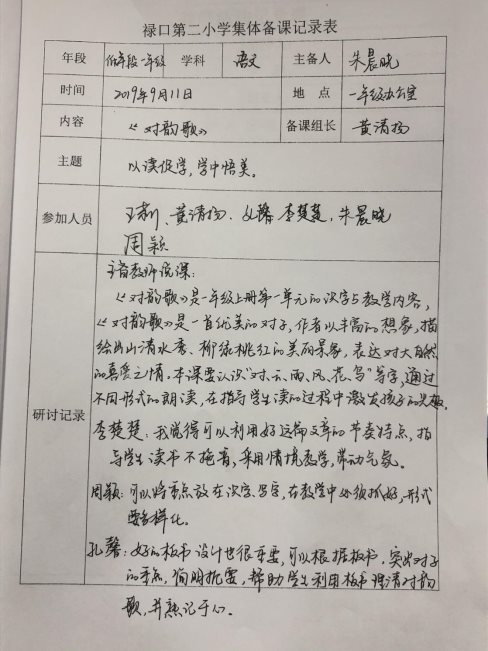 禄口第二小学集体备课记录表
年段 低年段一年级 学科 语文 主备人 朱晨晓
时间 2019年9月11日 地点 一年级办公室
内容 《对韵歌》 备课组长 黄清扬
主题 以读促学,学中悟美。
参加人员 王莉、黄清扬、孔馨、李楚楚,朱晨晓
周颖
研讨记录
主备教师说课:
《对韵歌》是一年级上册第一单元的识字与教学内容,
《对韵歌》是一首优美的对子,作者以丰富的想象,描
绘出山清水秀、柳绿桃红的美丽景象,表达对大自然
的喜爱之情。本课要认识“对、云、雨、风、花、鸟”等字,通过
不同形式的朗读,在指导学生读的过程中激发孩子的兴趣。
李楚楚:我觉得可以利用好这篇文章的节奏特点,指
导学生读书不拖音,采用情境教学,带动气氛。
周颖:可以将重点放在识字、写字,在教学中必须抓好,形式
要多样化。
孔馨:好的板书设计也很重要,可以根据板书,突出对子
的重点,简明扼要,帮助学生利用板书理清对韵
歌,并熟记于心。